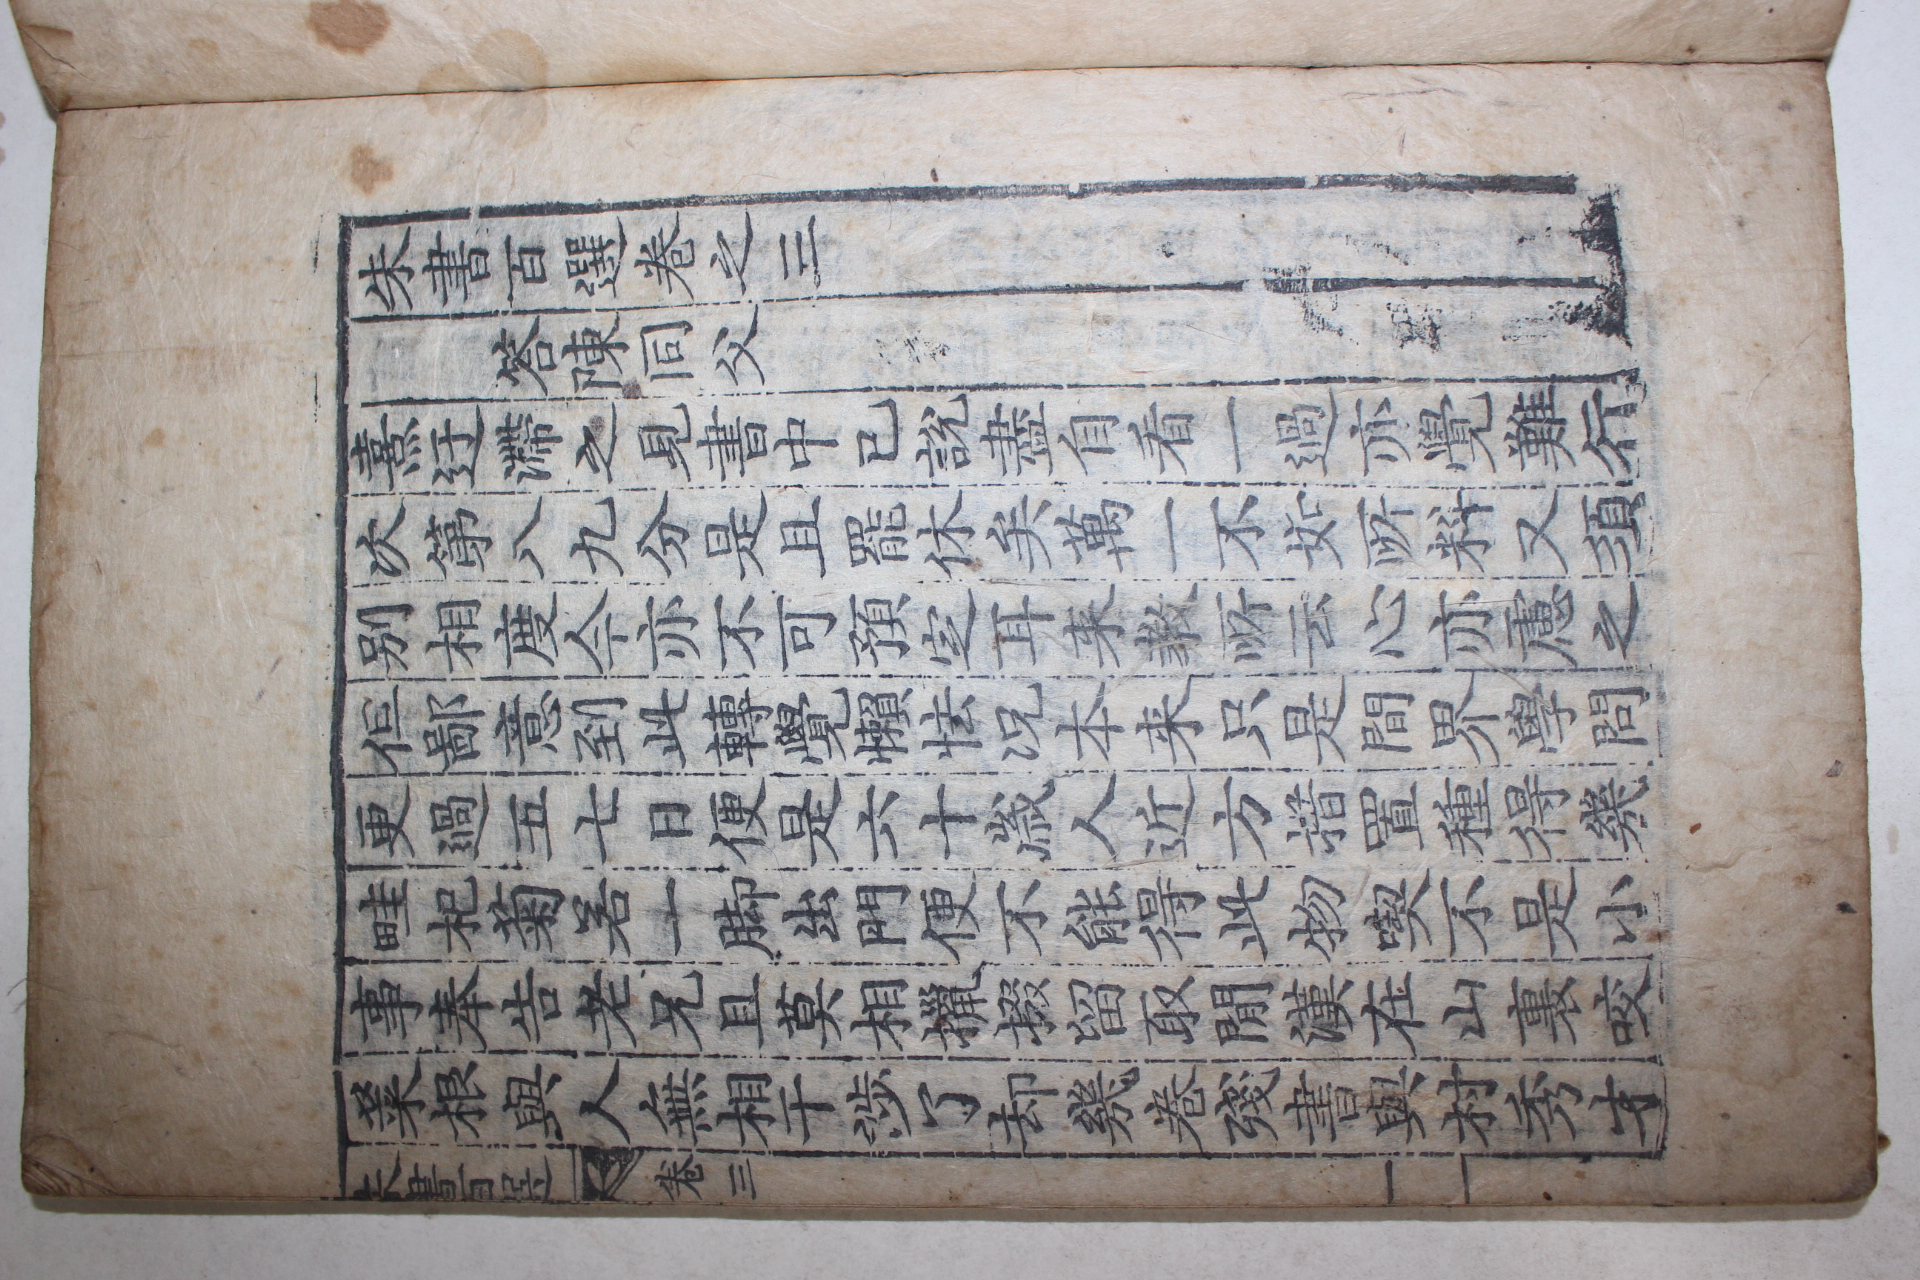 朱書百選卷之三
答陳同父
熹迂滯之見書中已說盡自看一過亦覺難行
次第八九分是且罷休矣萬一不如所料又須
別相度今亦不可預定耳來敎所云心亦慮之
但鄙意到此轉覺懶怯況本來只是間界學問
更過五七日便是六十歲人近方措置種得幾
畦杞菊若一脚出門便不能得此物喫不是小
事奉告老兄且莫相攛掇留取閒漢在山裏咬
菜根與人無相干涉了却幾卷殘書與村秀才
朱書百選 卷三 一